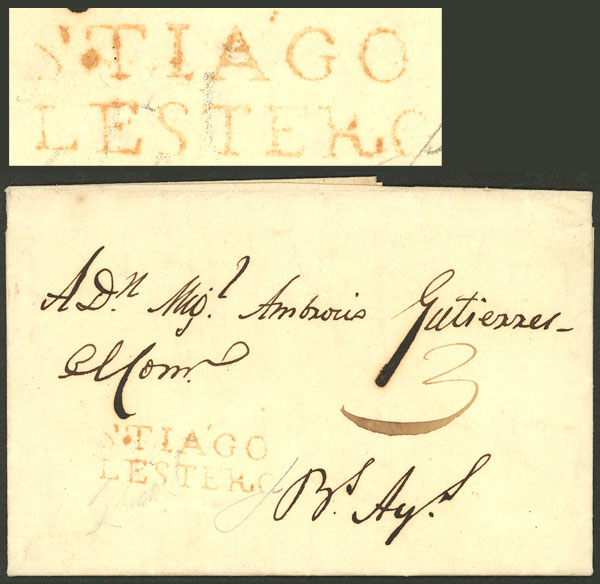 S.TIAGO
LESTERO
A Dn. Migl. Ambrocio Gutierres
3
S.TIAGO
LESTERO
Bs. Ays.